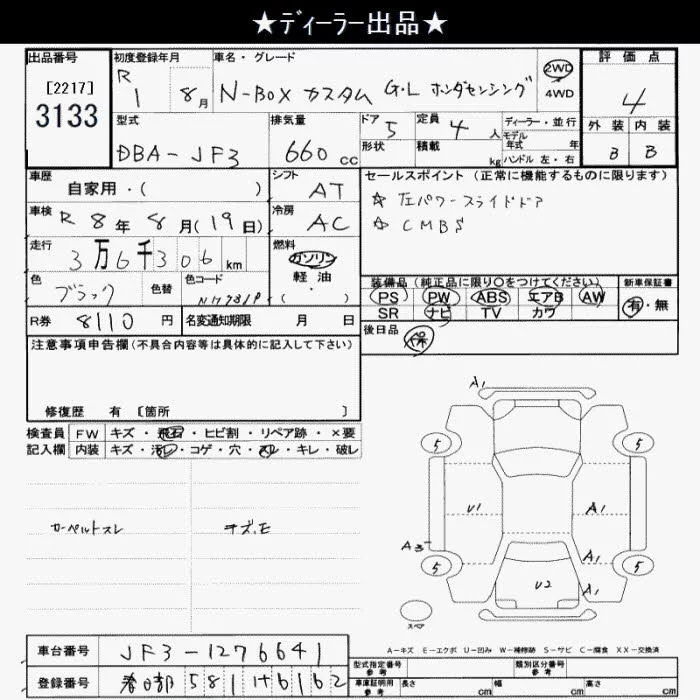 ★ディーラー出品★
出品番号 初度登録年月 車名・グレード 評価点
[2217] R 1 8月 N-BOX カスタム G・L ホンダセンシング 2WD 4WD 4
3133
型式 排気量 ドア 5 定員 4人 ディーラー・並行 外装 内装
DBA-JF3 660cc 形状 積載 kg モデル年式 年 B B
ハンドル 左・右
車歴 シフト セールスポイント(正常に機能するものに限ります)
自家用・( ) AT ☆ 左パワースライドドア
車検 R 8年 8月(19日) 冷房 AC ☆ CMBS
走行 3万6千306km 燃料
ガソリン
軽油
・( )
色 ブラック 色替 色コード NH731P
装備品(純正品に限り○をつけてください) 新車保証書
PS PW ABS エアB AW 有・無
SR ナビ TV カワ
R券 8110円 名変通知期限 月 日 後日品 保
注意事項申告欄(不具合内容等は具体的に記入して下さい)
修復歴 有 [箇所 ]
検査員 FW キズ・飛石・ヒビ割・リペア跡・×要
記入欄 内装 キズ・汚レ・コゲ・穴・スレ・キレ・破レ
カーペットスレ キズ、E
A1
5 5
U1 A1
A3 A1
5 5
U2 A1
スペア
A-キズ E-エクボ U-凹み W-補修跡 S-サビ C-腐食 XX-交換済
車台番号 JF3-1276641
型式指定番号 参考 類別区分番号 参考
登録番号 春日部 581 6162
車庫証明用 参考 長さ cm 幅 cm 高さ cm